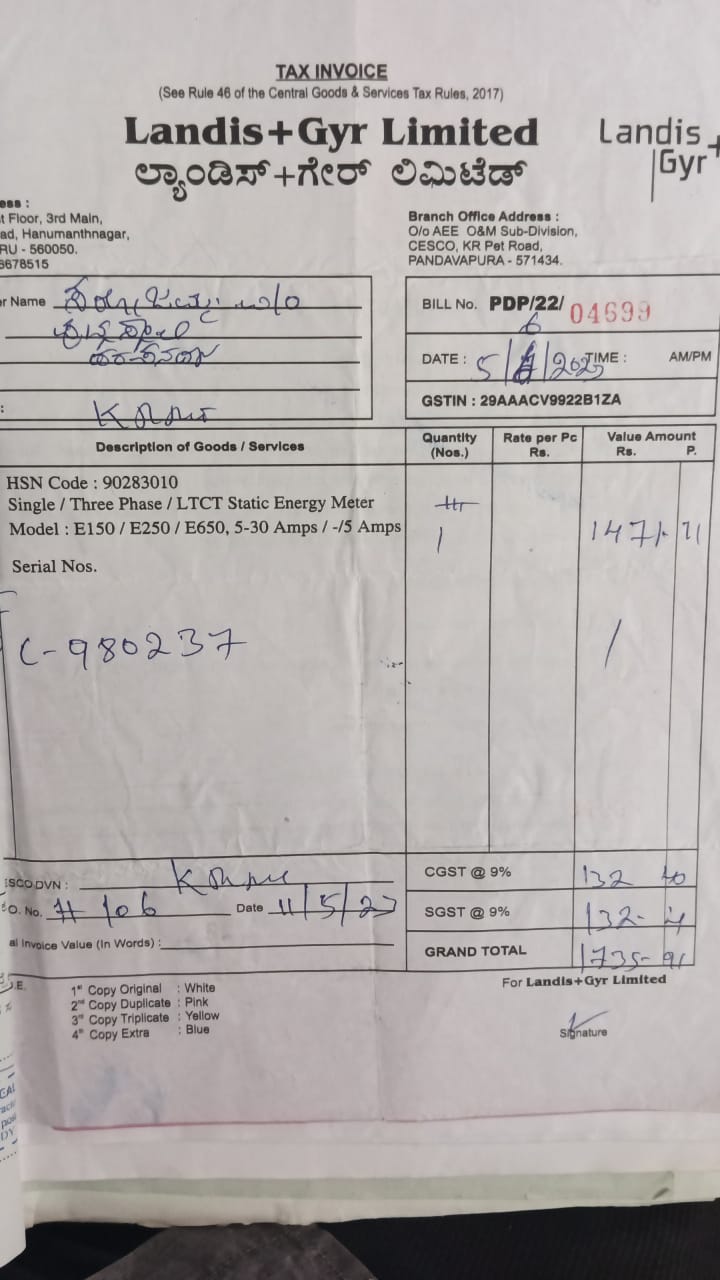 TAX INVOICE
(See Rule 46 of the Central Goods & Services Tax Rules, 2017)
Landis+Gyr Limited
ಲ್ಯಾಂಡಿಸ್+ಗೇರ್ ಲಿಮಿಟೆಡ್
Landis+
Gyr
ess :
t Floor, 3rd Main,
ad, Hanumanthnagar,
RU - 560050.
6678515
Branch Office Address :
O/o AEE O&M Sub-Division,
CESCO, KR Pet Road,
PANDAVAPURA - 571434.
r Name
BILL No. PDP/22/ 04699
DATE : 5/6/2023 TIME : AM/PM
GSTIN : 29AAACV9922B1ZA
Description of Goods / Services
Quantity (Nos.)
Rate per Pc Rs.
Value Amount Rs. P.
HSN Code : 90283010
Single / Three Phase / LTCT Static Energy Meter
Model : E150 / E250 / E650, 5-30 Amps / -/5 Amps
1
1471. 11
Serial Nos.
C-980237
ESCO DVN :
O. No. # 106 Date 11/5/23
al Invoice Value (In Words) :
CGST @ 9% 132 40
SGST @ 9% 132-
GRAND TOTAL 1735- 91
J.E.
1st Copy Original : White
2nd Copy Duplicate : Pink
3rd Copy Triplicate : Yellow
4th Copy Extra : Blue
For Landis+Gyr Limited
Signature